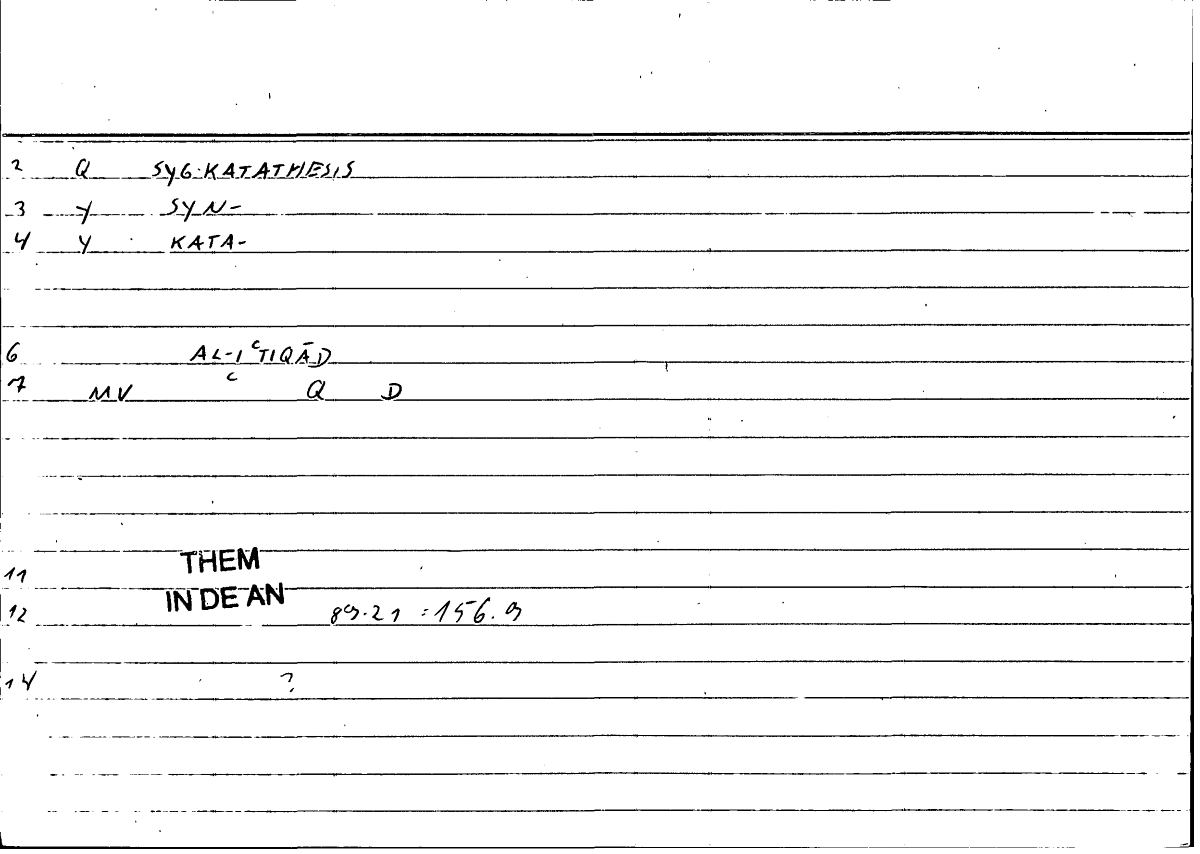 2 Q SYG·KATATHESIS
3 Y SYN-
4 Y KATA-
6 AL-IʿTIQĀD
7 MV ʿ Q D
11 THEM
12 IN DE AN 89.21 : 156.9
14 ?